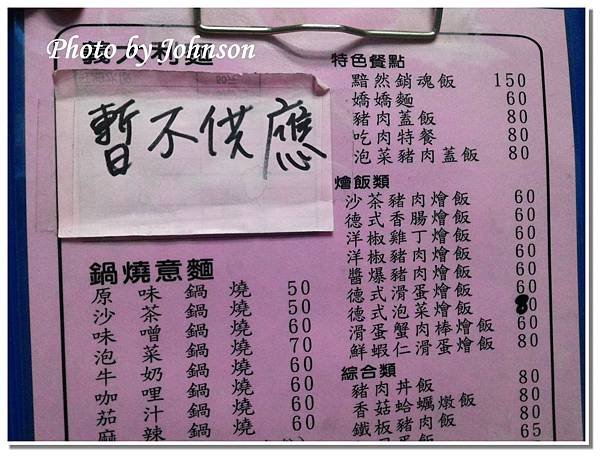 Photo by Johnson
義大利麵
暫不供應
鍋燒意麵
原味鍋燒 50
沙茶鍋燒 50
味噌鍋燒 60
泡菜鍋燒 70
牛奶鍋燒 60
咖哩鍋燒 60
茄汁鍋燒 60
麻辣鍋燒
特色餐點
黯然銷魂飯 150
嬌嬌麵 60
豬肉蓋飯 80
吃肉特餐 80
泡菜豬肉蓋飯 80
燴飯類
沙茶豬肉燴飯 60
德式香腸燴飯 60
洋椒雞丁燴飯 60
洋椒豬肉燴飯 60
醬爆豬肉燴飯 60
德式滑蛋燴飯 60
德式泡菜燴飯 80
滑蛋蟹肉棒燴飯 60
鮮蝦仁滑蛋燴飯 80
綜合類
豬肉丼飯 80
香菇蛤蠣燉飯 80
鐵板豬肉飯 65